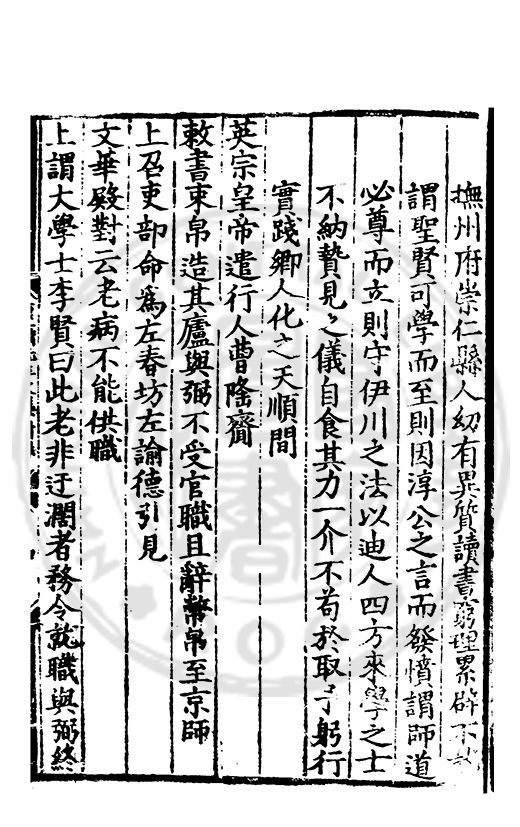 撫州府崇仁縣人幼有異質讀書窮理累辟不就
謂聖賢可學而至則因淳公之言而發憤謂師道
必尊而立則守伊川之法以迪人四方來學之士
不納贄見之儀自食其力一介不苟於取予躬行
實踐鄉人化之天順間
英宗皇帝遣行人曹隆齎
敕書束帛造其廬與弼不受官職且辭幣帛至京師
上召吏部命爲左春坊左諭德引見
文華殿對云老病不能供職
上謂大學士李賢曰此老非迂濶者務令就職與弼終